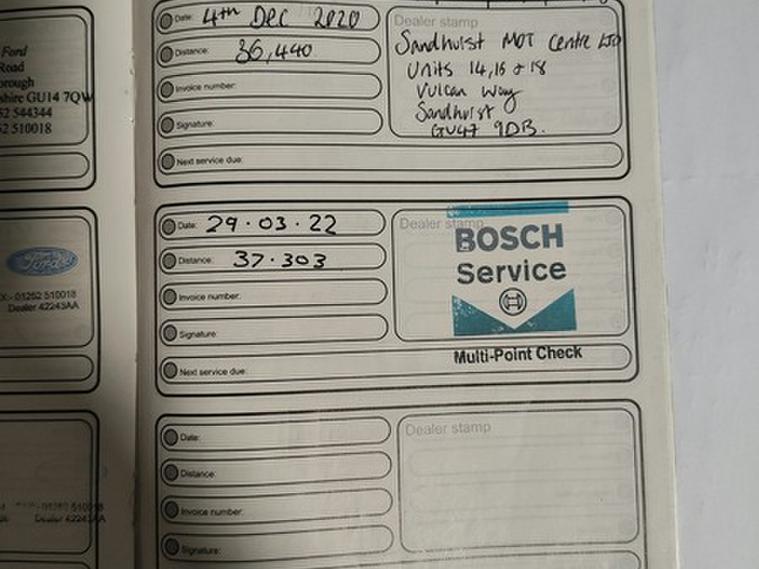 Ford
Road
orough
shire GU14 7QW
52 544344
2 510018
Ford
X:- 01252 510018
Dealer 42243AA
01252 510018
Dealer 42243AA
Date: 4th Dec 2020
Distance: 36,440
Invoice number:
Signature:
Next service due:
Dealer stamp
Sandhurst MOT Centre LTD
Units 14,16 & 18
Vulcan Way
Sandhurst
GU47 9DB.
Date: 29.03.22
Distance: 37.303
Invoice number:
Signature:
Next service due:
Dealer stamp
BOSCH
Service
Multi-Point Check
Date:
Distance:
Invoice number:
Signature:
Dealer stamp